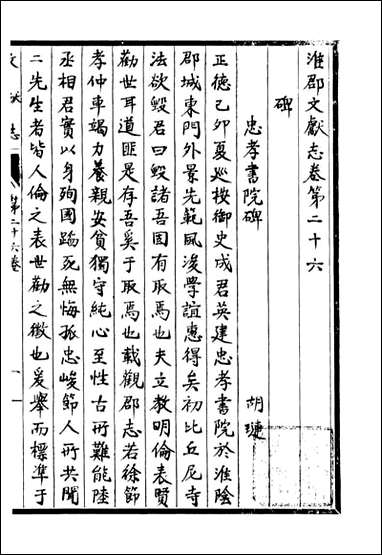 淮郡文獻志卷第二十六
碑
忠孝書院碑
胡璉
正德己卯夏巡按御史成君英建忠孝書院於淮陰
郡城東門外景先範風浚學誼惠得矣初比丘尼寺
法欲毀君曰毀諸吾固有取焉也夫立教明倫表賢
勸世耳道匪是存吾奚于取焉也載觀郡志若徐節
孝仲車竭力養親安貧獨守純心至性古所難能陸
丞相君實以身殉國蹈死無悔孤忠峻節人所共聞
二先生者皆人倫之表世勸之徵也爰舉而標準于
文獻志
第二十六卷
一